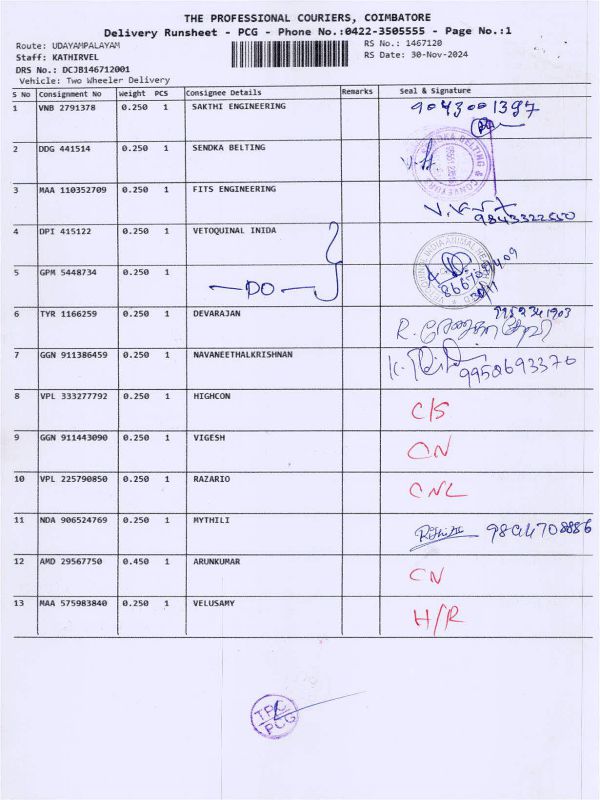 THE PROFESSIONAL COURIERS, COIMBATORE
Delivery Runsheet - PCG - Phone No.:0422-3505555 - Page No.:1
Route: UDAYAMPALAYAM RS No.: 1467120
Staff: KATHIRVEL RS Date: 30-Nov-2024
DRS No.: DCJB146712001
Vehicle: Two Wheeler Delivery
S No Consignment No Weight PCS Consignee Details Remarks Seal & Signature
1 VNB 2791378 0.250 1 SAKTHI ENGINEERING 9043001397
2 DDG 441514 0.250 1 SENDKA BELTING
SENDKA BELTING & CONVEYORS
3 MAA 110352709 0.250 1 FITS ENGINEERING
9843322650
4 DPI 415122 0.250 1 VETOQUINAL INIDA
5 GPM 5448734 0.250 1 DO
6 TYR 1166259 0.250 1 DEVARAJAN
7 GGN 911386459 0.250 1 NAVANEETHALKRISHNAN 9952693376
8 VPL 333277792 0.250 1 HIGHCON C/S
9 GGN 911443090 0.250 1 VIGESH CN
10 VPL 225790850 0.250 1 RAZARIO CNL
11 NDA 906524769 0.250 1 MYTHILI
12 AMD 29567750 0.450 1 ARUNKUMAR CN
13 MAA 575983840 0.250 1 VELUSAMY H/R
TPC
PCG